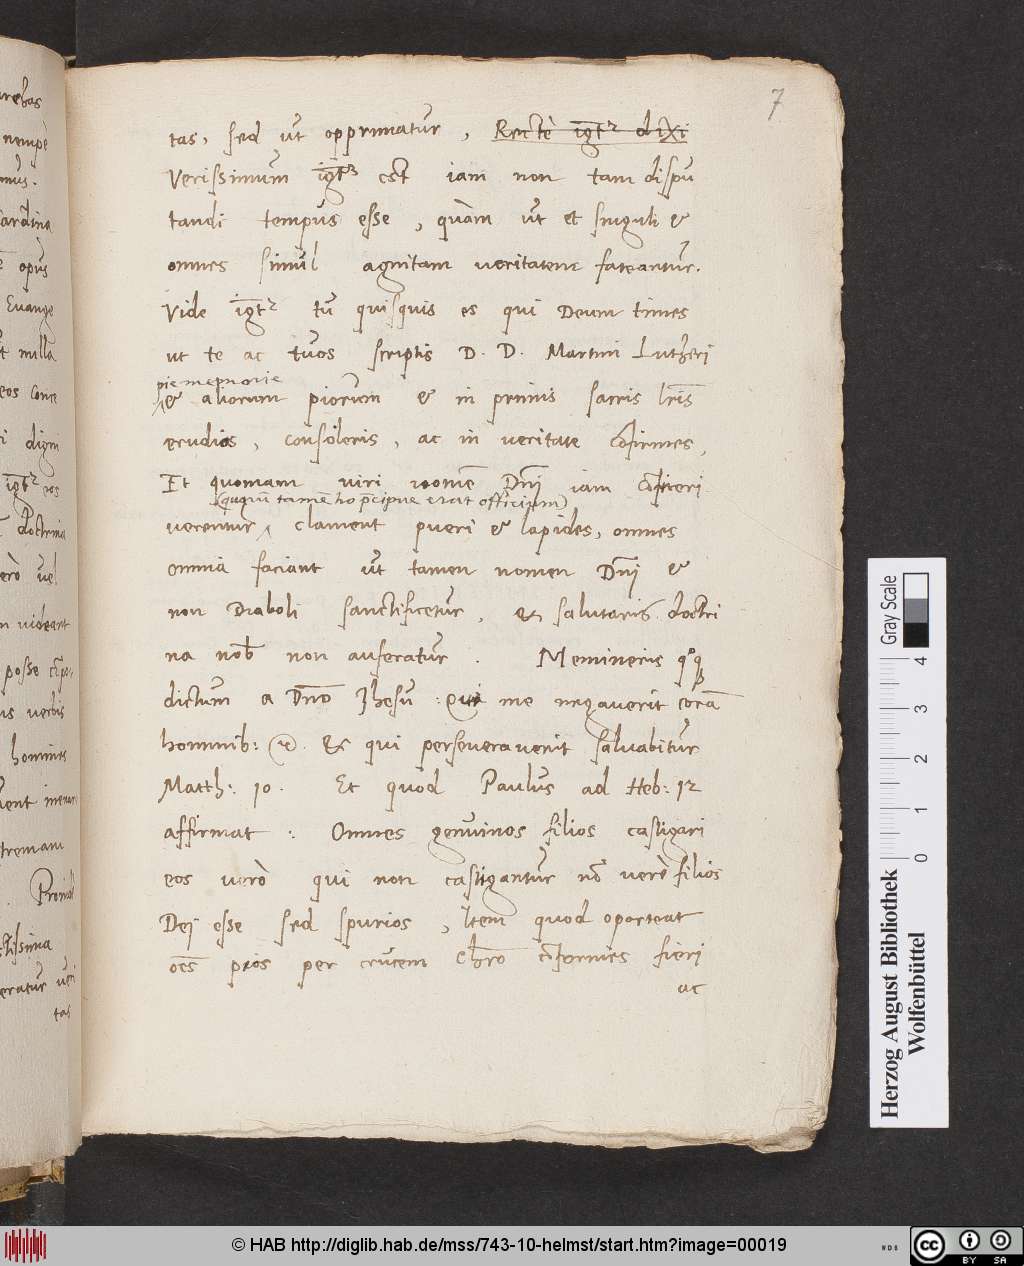 7
tas, sed ut opprimatur, Recte igtr dixi
Verissimum igtr est iam non tam dispu
tandi tempus esse, quàm ut et singuli &
omnes simul agnitam veritatem fateantur.
Vide igtr tu quisquis es qui Deum times
ut te ac tuos scriptis D. D. Martini Lutheri
pie memorie
& aliorum piorum & in primis sacris lris
erudias, consoleris, ac in veritate cofirmes,
Et quoniam viri nomē Dni iam cofiteri
(quorū tamē ho pcipue erat officium)
verentur, clament pueri & lapides, omnes
omnia faciant ut tamen nomen Dni &
non Diaboli sanctificetur, & salutaris doctri
na nob non auferatur. Memineris qoq
dictum a Dno Jhesu: Qui me negaverit corā
hominib: &c. & qui perseveraverit salvabitur
Matth: 10. Et quod Paulus ad Heb: 12
affirmat: Omnes genuinos filios castigari
eos verò qui non castigantur nō verè filios
Dei esse sed spurios, Item quod oporteat
oēs pios per crucem Chro cōformes fieri
ac
rebas
nempè
opus
Euange
nulla
eos
digni
igtr eos
doctrina
verò vel
videant
posse
verbis
homines
tremam
tissima
eratur veri
tas
Gray Scale
0 1 2 3 4
Herzog August Bibliothek
Wolfenbüttel
© HAB http://diglib.hab.de/mss/743-10-helmst/start.htm?image=00019
cc BY SA